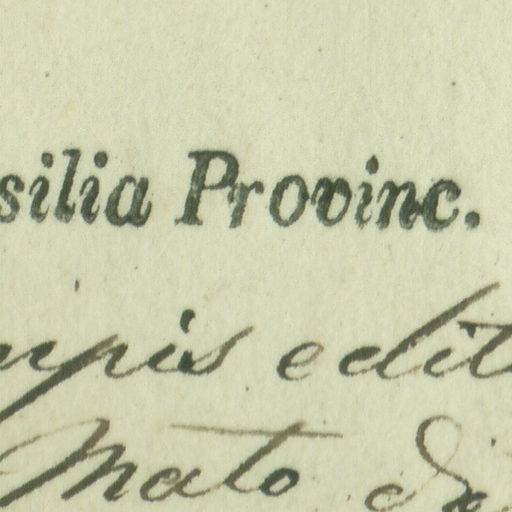 silia Provinc.
upis edit
Mato di